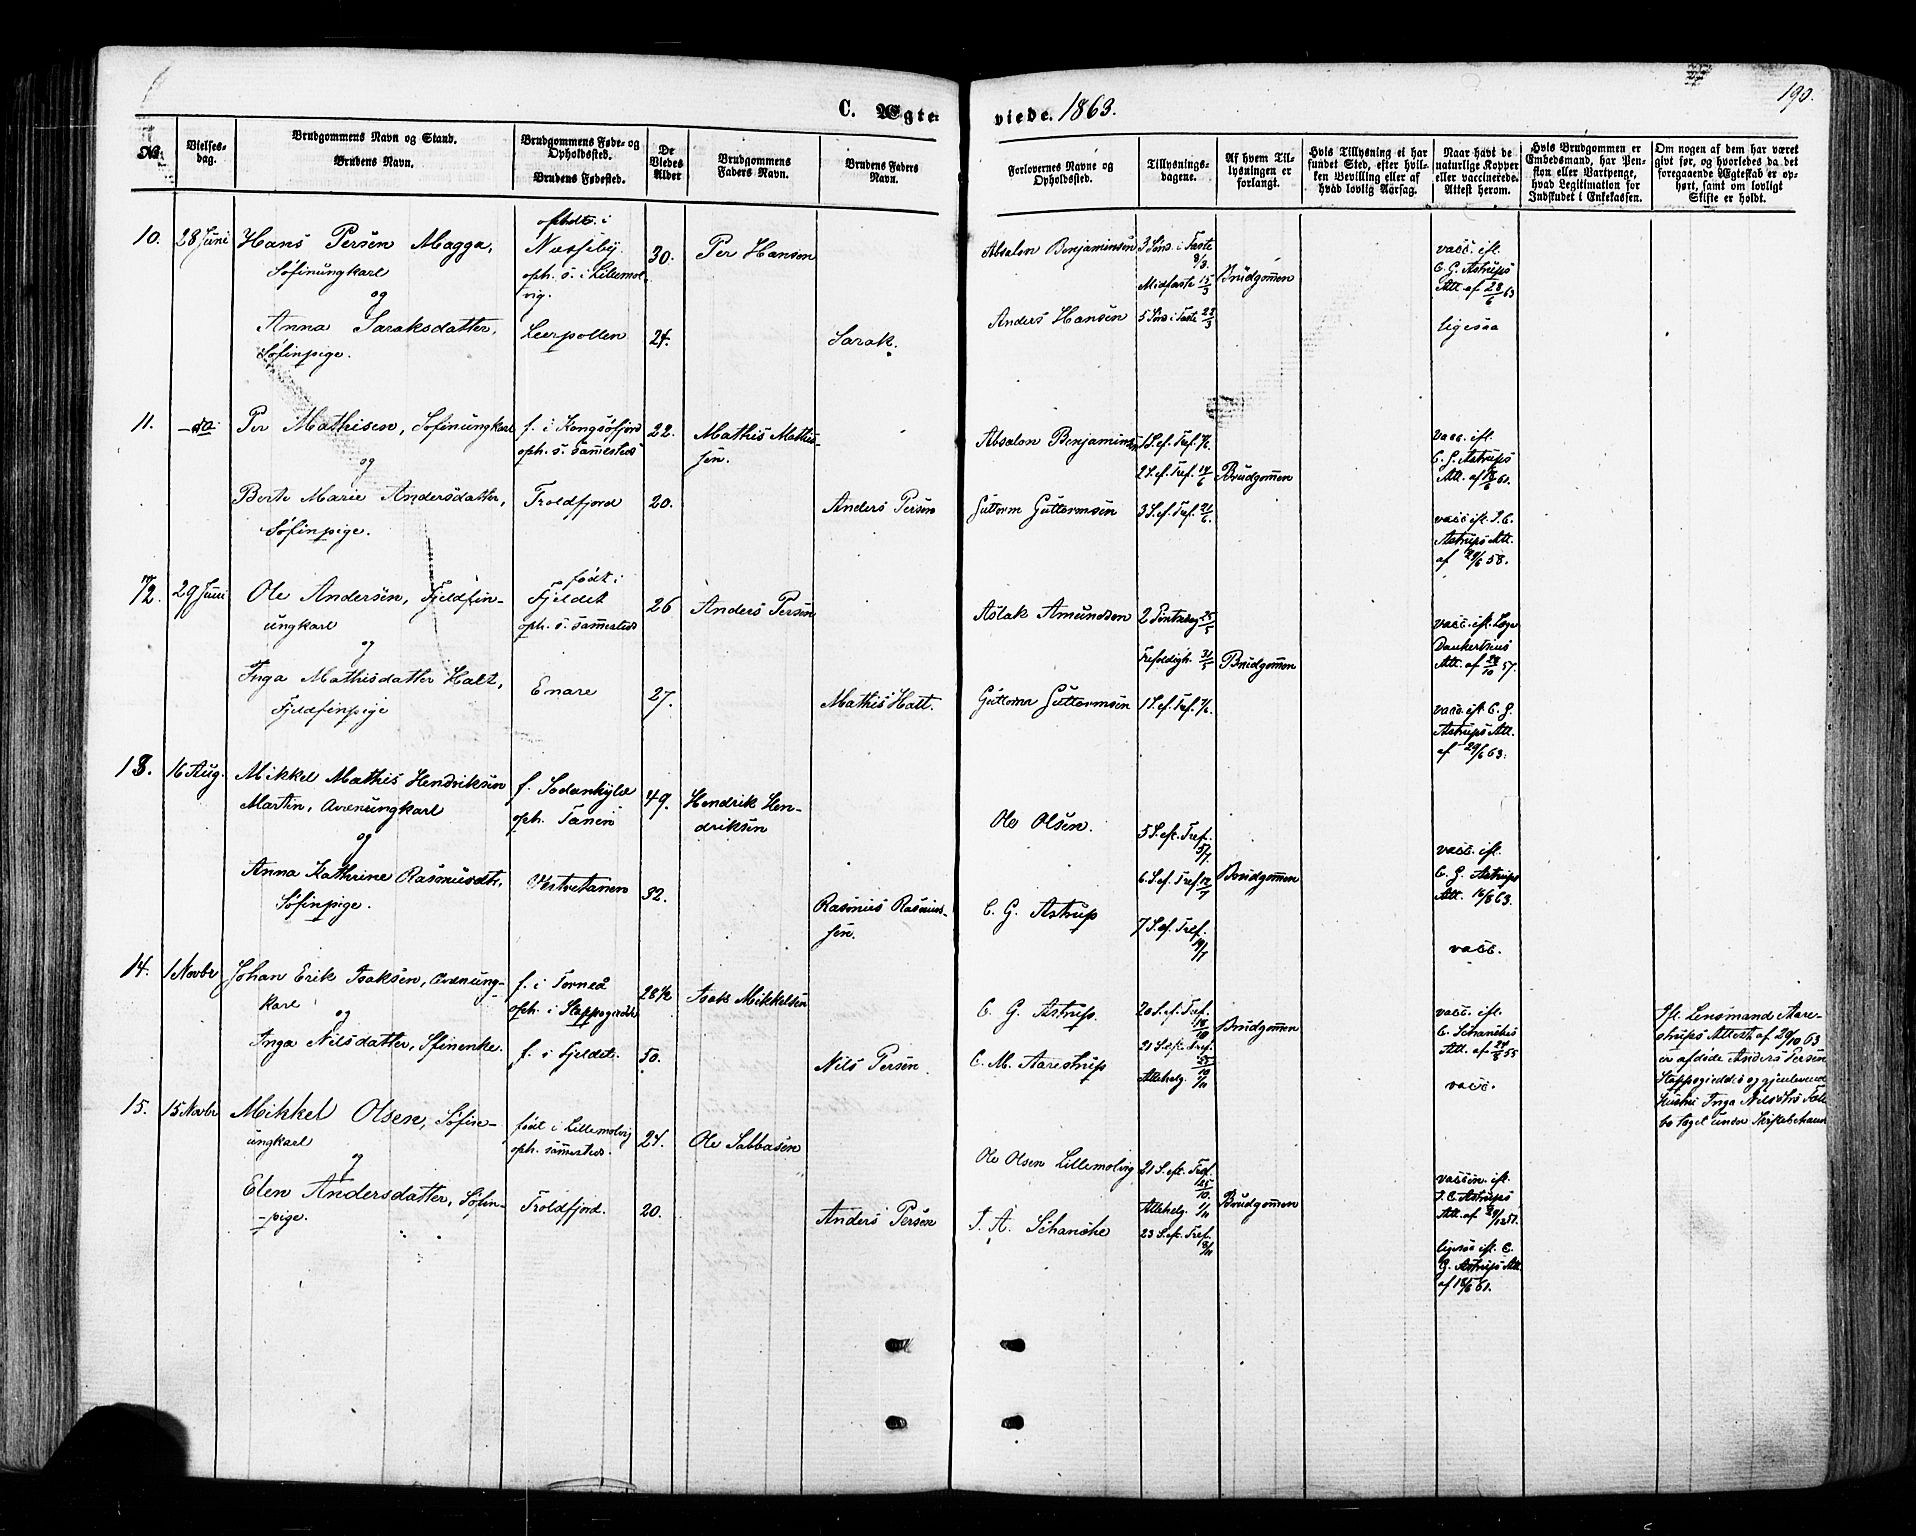 C. Ægteviede. 1863.
190.
No
Vielsesdag.
Brudgommens Navn og Stand.
Brudens Navn.
Brudgommens Føde- og Opholdssted.
Brudens Fødested.
De Viedes Alder
Brudgommens Faders Navn.
Brudens Faders Navn.
Forlovernes Navne og Opholdssted.
Tillysningsdagene.
Af hvem Tillysningen er forlangt.
Hvis Tillysning ei har fundet Sted, efter hvilken Bevilling eller af hvad lovlig Aarsag.
Naar havt de naturlige Kopper eller vaccinerede. Attest herom.
Hvis Brudgommen er Embedsmand, har Pension eller Vartpenge, hvad Legitimation for Indskudet i Enkekassen.
Om nogen af dem har været givt før, og hvorledes da det foregaaende Ægteskab er ophørt, samt om lovligt Skifte er holdt.
10. 28 Juni Hans Persen Magga,
Søfinungkarl
og
Anna Saraksdatter,
Søfinpige.
Næsseby
oph. s. i Lillemolvig.
Leerpollen
30.
24.
Per Hansen
Sarak.
Absalon Benjaminsen
Anders Hansen
3 Søns. i Faste 8/3.
Midfaste 15/3
5 Søns. i Faste 22/3
Brudgommen
vacc. ifl.
C. G. Astrups
Att. af 28/6 63
ligesaa
11. -do- Per Mathisen, Søfinungkarl
og
Berte Marie Andersdatter,
Søfinpige.
f. i Kongsøfjord
oph. s. sammesteds
Troldfjord
22.
20.
Mathis Mathissen.
Anders Persen
Absalon Benjaminsen
Guttorm Guttormsen
1 S. ef. Tref. 7/6.
2 S. ef. Tref. 14/6
3 S. ef. Tref. 21/6.
Brudgommen
Vacc. ifl.
C. G. Astrups
vacc. ifl. I. C.
Astrups Att.
af 29/6 58.
12. 29 Juni Ole Andersen, Fjeldfin-
ungkarl
og
Inga Mathisdatter Halt,
Fjeldfinpige
født i
Fjeldet
oph. s. sammesteds
Enare
26
27.
Anders Persen
Mathis Halt.
Aslak Amundsen
Guttorm Guttormsen
2 Pintsedag 25/5
Trefoldigh. 31/5
1 S. ef. Tref. 7/6.
Brudgommen
vacc. ifl. Læge
Dankertsens
Att. af 28/10 57.
vacc. ifl. C. G.
Astrups Att.
af 29/6 63.
13. 16 Aug. Mikkel Mathis Hendriksen
Martin, Qvænungkarl
og
Anna Kathrine Rasmusdtr,
Søfinpige.
f. Sodankyle
oph. Tanen
Vestretanen
49.
32.
Hendrik Hen-
driksen
Rasmus Rasmus-
sen.
Ole Olsen.
C. G. Astrup
5 S. eft. Tref. 5/7.
6 S. ef. Tref. 12/7
7 S. ef. Tref. 19/7
Brudgommen
vacc. ifl.
C. G. Astrups
Att. 16/8 63.
vacc.
14. 1 Novbr Johan Erik Isaksen, Qvænung-
karl
og
Inga Nilsdatter, Sfinenke.
f. i Torneå
oph. i Stappogiedde
f. i Fjeldet.
28½
50.
Isak Mikkelsen
Nils Persen.
C. G. Astrup.
C. M. Aarestrup
20 S. ef. Tref. 18/10
21 S. ef. Tref. 25/10
Allehelg. 1/11
Brudgommen
vacc. ifl.
C. Schanches
vacc.
Ifl. Lensmand Aare-
strups Attest af 29/10 63
er afdøde Anders Persen
Stappogieddes og gjenlevende
Hustru Inga Nilsdtrs Fælles-
bo taget under Skiftebehand
15. 15 Novbr Mikkel Olsen, Søfin-
ungkarl
og
Elen Andersdatter, Søfin-
-pige.
født i Lillemolvig
oph. sammesteds.
Troldfjord.
24.
20.
Ole Sabbasen
Anders Persen
Ole Olsen Lillemolvig
I. A. Schanche
21 S. eft. Tref. 25/10.
Allehelg. 1/11
23 S. ef. Tref. 8/11
Brudgommen
vaccin. ifl.
I. C. Astrups
ligesaa ifl. C.
G. Astrups Att.